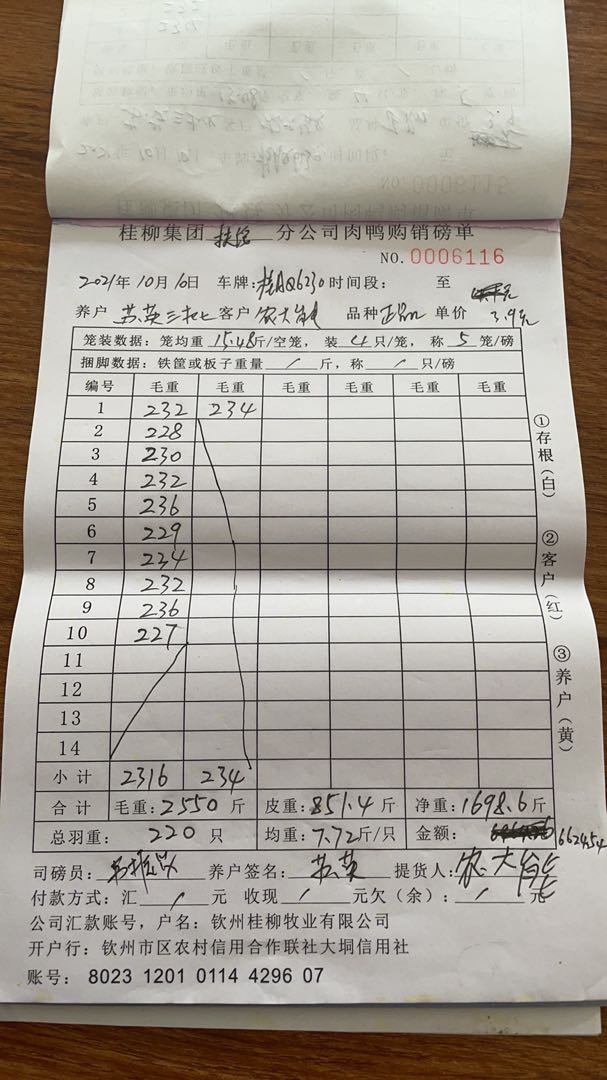 桂柳集团 扶绥 分公司肉鸭购销磅单
NO.0006116
2021年10月10日 车牌:桂AQ6230 时间段: 至
养户 苏英 客户 农大 品种 正品 单价 3.9元
笼装数据:笼均重 15.48 斤/空笼,装 4 只/笼,称 5 笼/磅
捆脚数据:铁筐或板子重量 / 斤,称 / 只/磅
编号 毛重 毛重 毛重 毛重 毛重 毛重
1 232 234
2 228
3 230
4 232
5 236
6 229
7 234
8 232
9 236
10 227
11
12
13
14
小计 2316 234
合计 毛重:2550斤 皮重:851.4斤 净重:1698.6斤
总羽重: 220 只 均重:7.72斤/只 金额: 6624.54
司磅员: 养户签名:苏英 提货人:农大
付款方式:汇 / 元 收现 / 元欠(余): / 元
公司汇款账号,户名:钦州桂柳牧业有限公司
开户行:钦州市区农村信用合作联社大垌信用社
账号: 8023 1201 0114 4296 07
①存根(白)
②客户(红)
③养户(黄)